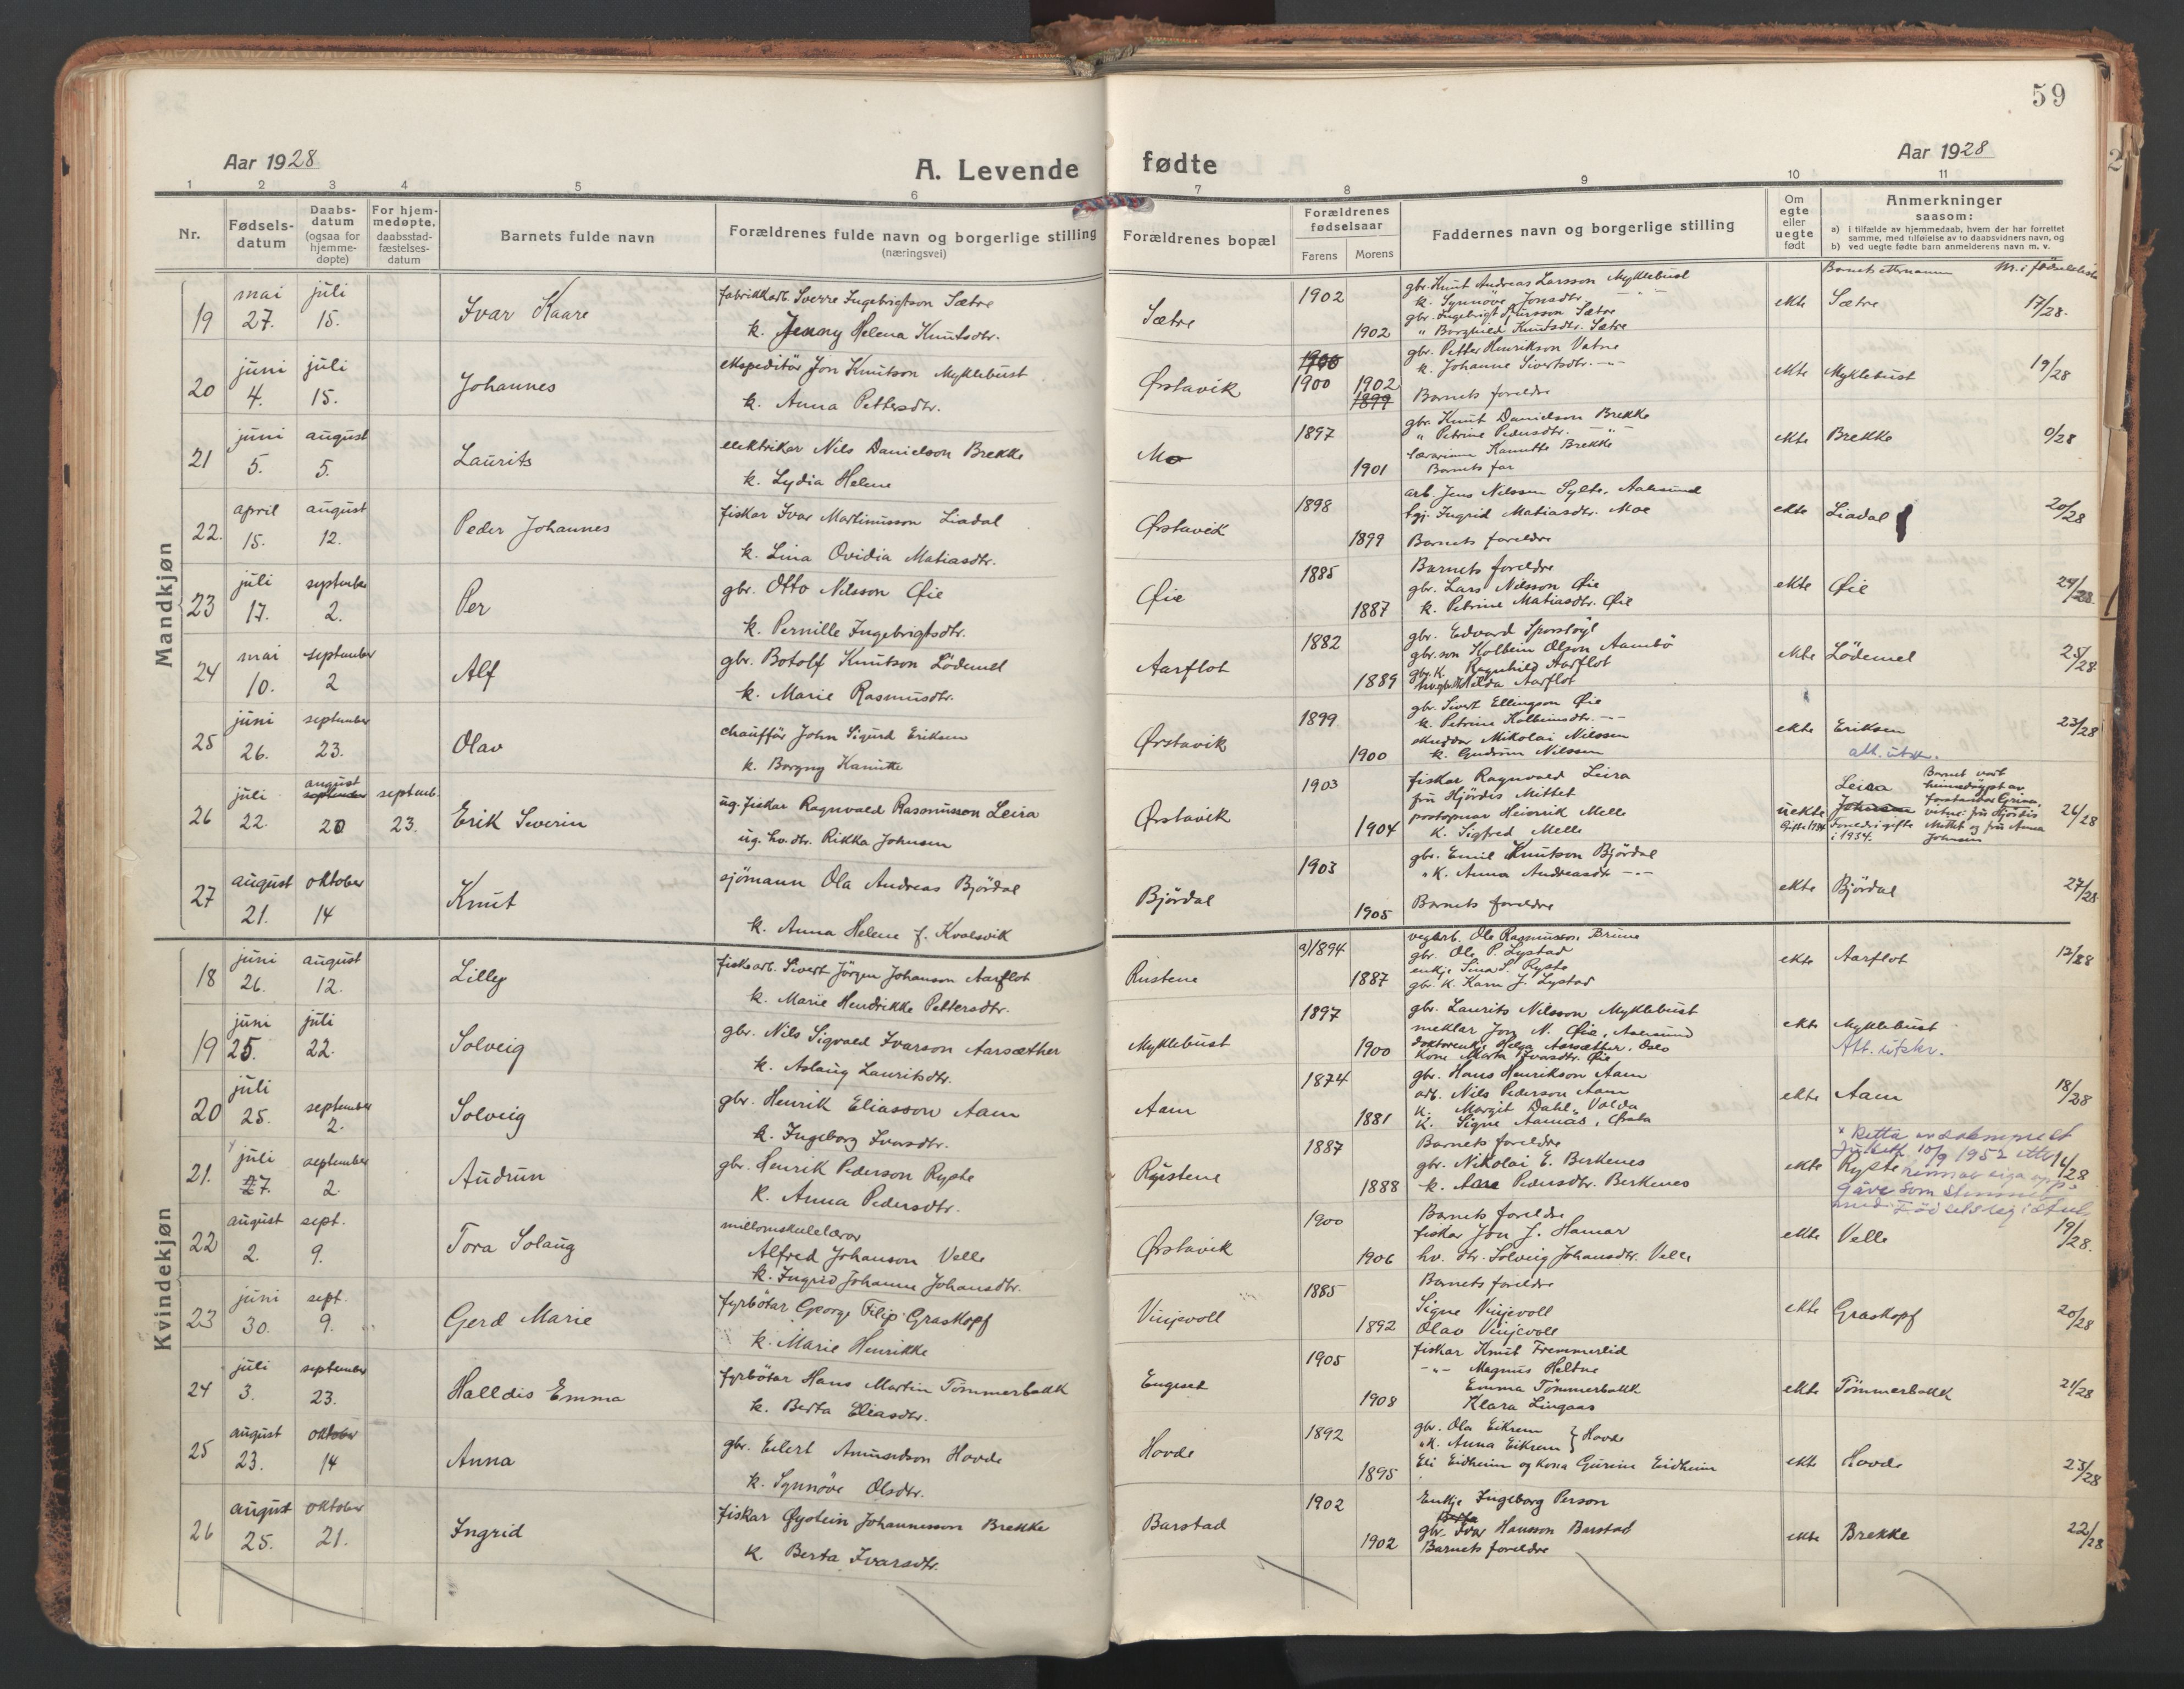 59
Aar 1928
A. Levende fødte
Aar 1928
1 2 3 4 5 6 7 8 9 10 11
Nr.
Fødsels-datum
Daabs-datum (ogsaa for hjemme-døpte)
For hjem-medøpte, daabsstad-fæstelses-datum
Barnets fulde navn
Forældrenes fulde navn og borgerlige stilling (næringsvei)
Forældrenes bopæl
Forældrenes fødselsaar
Farens Morens
Faddernes navn og borgerlige stilling
Om egte eller uegte født
Anmerkninger saasom:
a) i tilfælde av hjemmedaab, hvem der har forrettet samme, med tilføielse av to daabsvidners navn, og
b) ved uegte fødte barn anmelderens navn m. v.
Barnets etternamn
Nr. i fødselsliste
Mandkjøn
19 mai 27. juli 15. Ivar Kaare
fabrikkarb. Sverre Ingebrigtson Sætre
k. Jenny Helena Knutsdtr.
Sætre 1902 1902
gbr. Knut Andreas Larsson Myklebust
k. Synnöve Jonsdtr. - " -
gbr. Ingebrigt Sjursson Sætre
" Borghild Knutsdtr. Sætre
ekte Sætre 17/28.
20 juni 4. juli 15. Johannes
ekspeditör Jon Knutson Myklebust
k. Anna Pettersdtr.
Ørstavik 1900 1902 1899
gbr. Petter Henrikson Vatne
k. Johanne Sivertsdtr. - " -
Barnets foreldre
ekte Myklebust 19/28
21 juni 5. august 5. Laurits
elektrikar Nils Danielson Brekke
k. Lydia Helene
Mo 1897 1901
gbr. Knut Danielson Brekke
" Petrine Pedersdtr. - " -
lærarinne Kanutte Brekke
Barnets far
ekte Brekke 0/28
22. april 15. august 12. Peder Johannes
fiskar Ivar Martinusson Liadal
k. Lina Ovidia Matiasdtr.
Ørstavik 1898 1899
arb. Jens Nilssen Sylte, Aalesund
Ingrid Matiasdtr. Moe
Barnets foreldre
ekte Liadal 20/28
23 juli 17. september 2. Per
gbr. Otto Nilsson Øie
k. Pernille Ingebrigtsdtr.
Øie 1885 1887
Barnets foreldre
gbr. Lars Nilsson Øie
k. Petrine Matiasdtr. Øie
ekte Øie 29/28
24 mai 10. september 2 Alf
gbr. Botolf Knutson Lödemel
k. Marie Rasmusdtr.
Aarflot 1882 1889
gbr. Edvard Sporstöyl
gbr.son Kolbein Olson Aambö
gbr. k. Ragnhild Aarflot
Hilda Aarflot
ekte Lödemel 25/28
25 juni 26. september 23. Olav
chaufför John Sigurd Eriksen
k. Borgny Kanutte
Ørstavik 1899 1900
gbr. Sivert Ellingson Øie
k. Petrine Kolbeinsdtr. - " -
skreddar Mikolai Nilssen
k. Gudrun Nilssen
ekte Eriksen 23/28
att. utskr.
26 juli 22. august september 20 septemb. 23. Erik Severin
ug. fiskar Ragnvald Rasmusson Leira
ug. hv. dtr. Rikka Johnsen
Ørstavik 1903 1904
fiskar Ragnvald Leira
fru Hjördis Mittet
postopnar Heinrik Melle
k. Sigfred Melle
uekte Gifte 1934
Leira Johnsen Foreldri gifte i 1934.
Barnet vart heimedöypt av forstandar Grimn, vitne: fru Hjördis Mittet og fru Anna Johnsen
26/28
27 august 21. oktober 14 Knut
sjömann Ola Andreas Björdal
k. Anna Helene f. Kvalsvik
Björdal 1903 1905
gbr. Emil Knutson Björdal
" k. Anna Andreasdtr - " -
Barnets foreldre
ekte Björdal 27/28
Kvindekjøn
18 juni 26. august 12. Lilly
fiskarb. Sivert Jörgen Johanson Aarflot
k. Marie Hendrikke Pettersdtr.
Rustene a) 1894 1887
vegarb. Ole Rasmusson Brune
gbr. Ole P. Lystad
enkje Sina S. Ryste
gbr. k. Karn J. Lystad
ekte Aarflot 12/28
19 juni 25. juli 22. Solveig
gbr. Nils Sigvald Ivarson Aarsæther
k. Aslaug Lauritsdtr.
Myklebust 1897 1900
gbr. Laurits Nilsson Myklebust
meklar Jon N. Øie, Aalesund
doktorenkje Helga Aarsæther, Oslo
kone Marta Ivarsdtr. Øie
ekte Myklebust
Att. utskr.
20 juli 25. september 2. Solveig
gbr. Henrik Eliasson Aam
k. Ingeborg Ivarsdtr.
Aam 1874 1881
gbr. Hans Henrikson Aam
arb. Nils Pederson Aam
k. Margit Dahl, Volda
k. Signe Aamås, Ørsta
ekte Aam 18/28
21. juli 27. september 2. Audrun
gbr. Henrik Pederson Ryste
k. Anna Pedersdtr.
Rystene 1887 1888
Barnets foreldre
gbr. Nikolai E. Berkenes
k. Ane Pedersdtr. Berkenes
ekte Ryste 16/28
* Retta 10/9 1952 etter
gåve som stemmer
med
22 august 2. sept. 9. Tora Solaug
millomskulelærar
Alfred Johanson Velle
k. Ingrid Johanne Johansdtr.
Ørstavik 1900 1906
Barnets foreldre
fiskar Jon J. Hamar
hv. dtr. Solveig Johansdtr. Velle
ekte Velle 19/28.
23 juni 30. sept. 9. Gerd Marie
fyrbötar George Filip Graskopf
k. Marie Henrikke
Vinjevoll 1885 1892
Barnets foreldre
Signe Vinjevoll
Olav Vinjevoll
ekte Graskopf 20/28
24 juli 3. september 23. Halldis Emma
fyrbötar Hans Martin Tömmerbakk
k. Berta Eliasdtr.
Engeset 1905 1908
fiskar Knut Fremmerlid
- " - Magnus Heltne
Emma Tömmerbakk
Klara Lingaas
ekte Tömmerbakk 21/28
25 august 23. oktober 14 Anna
gbr. Eilert Amundson Hovde
k. Synnöve Olsdtr.
Hovde 1892 1895
gbr. Ola Eikrem } Hovde
" k. Anna Eikrem
Eli Eidheim og kona Gurine Eidheim
ekte Hovde 23/28
26 august 25. oktober 21. Ingrid
fiskar Øystein Johannesson Brekke
k. Berta Ivarsdtr.
Barstad 1902 1902
Enkje Ingeborg Person
Berta
gbr. Ivar Hansson Barstad
Barnets foreldre
ekte Brekke 22/28